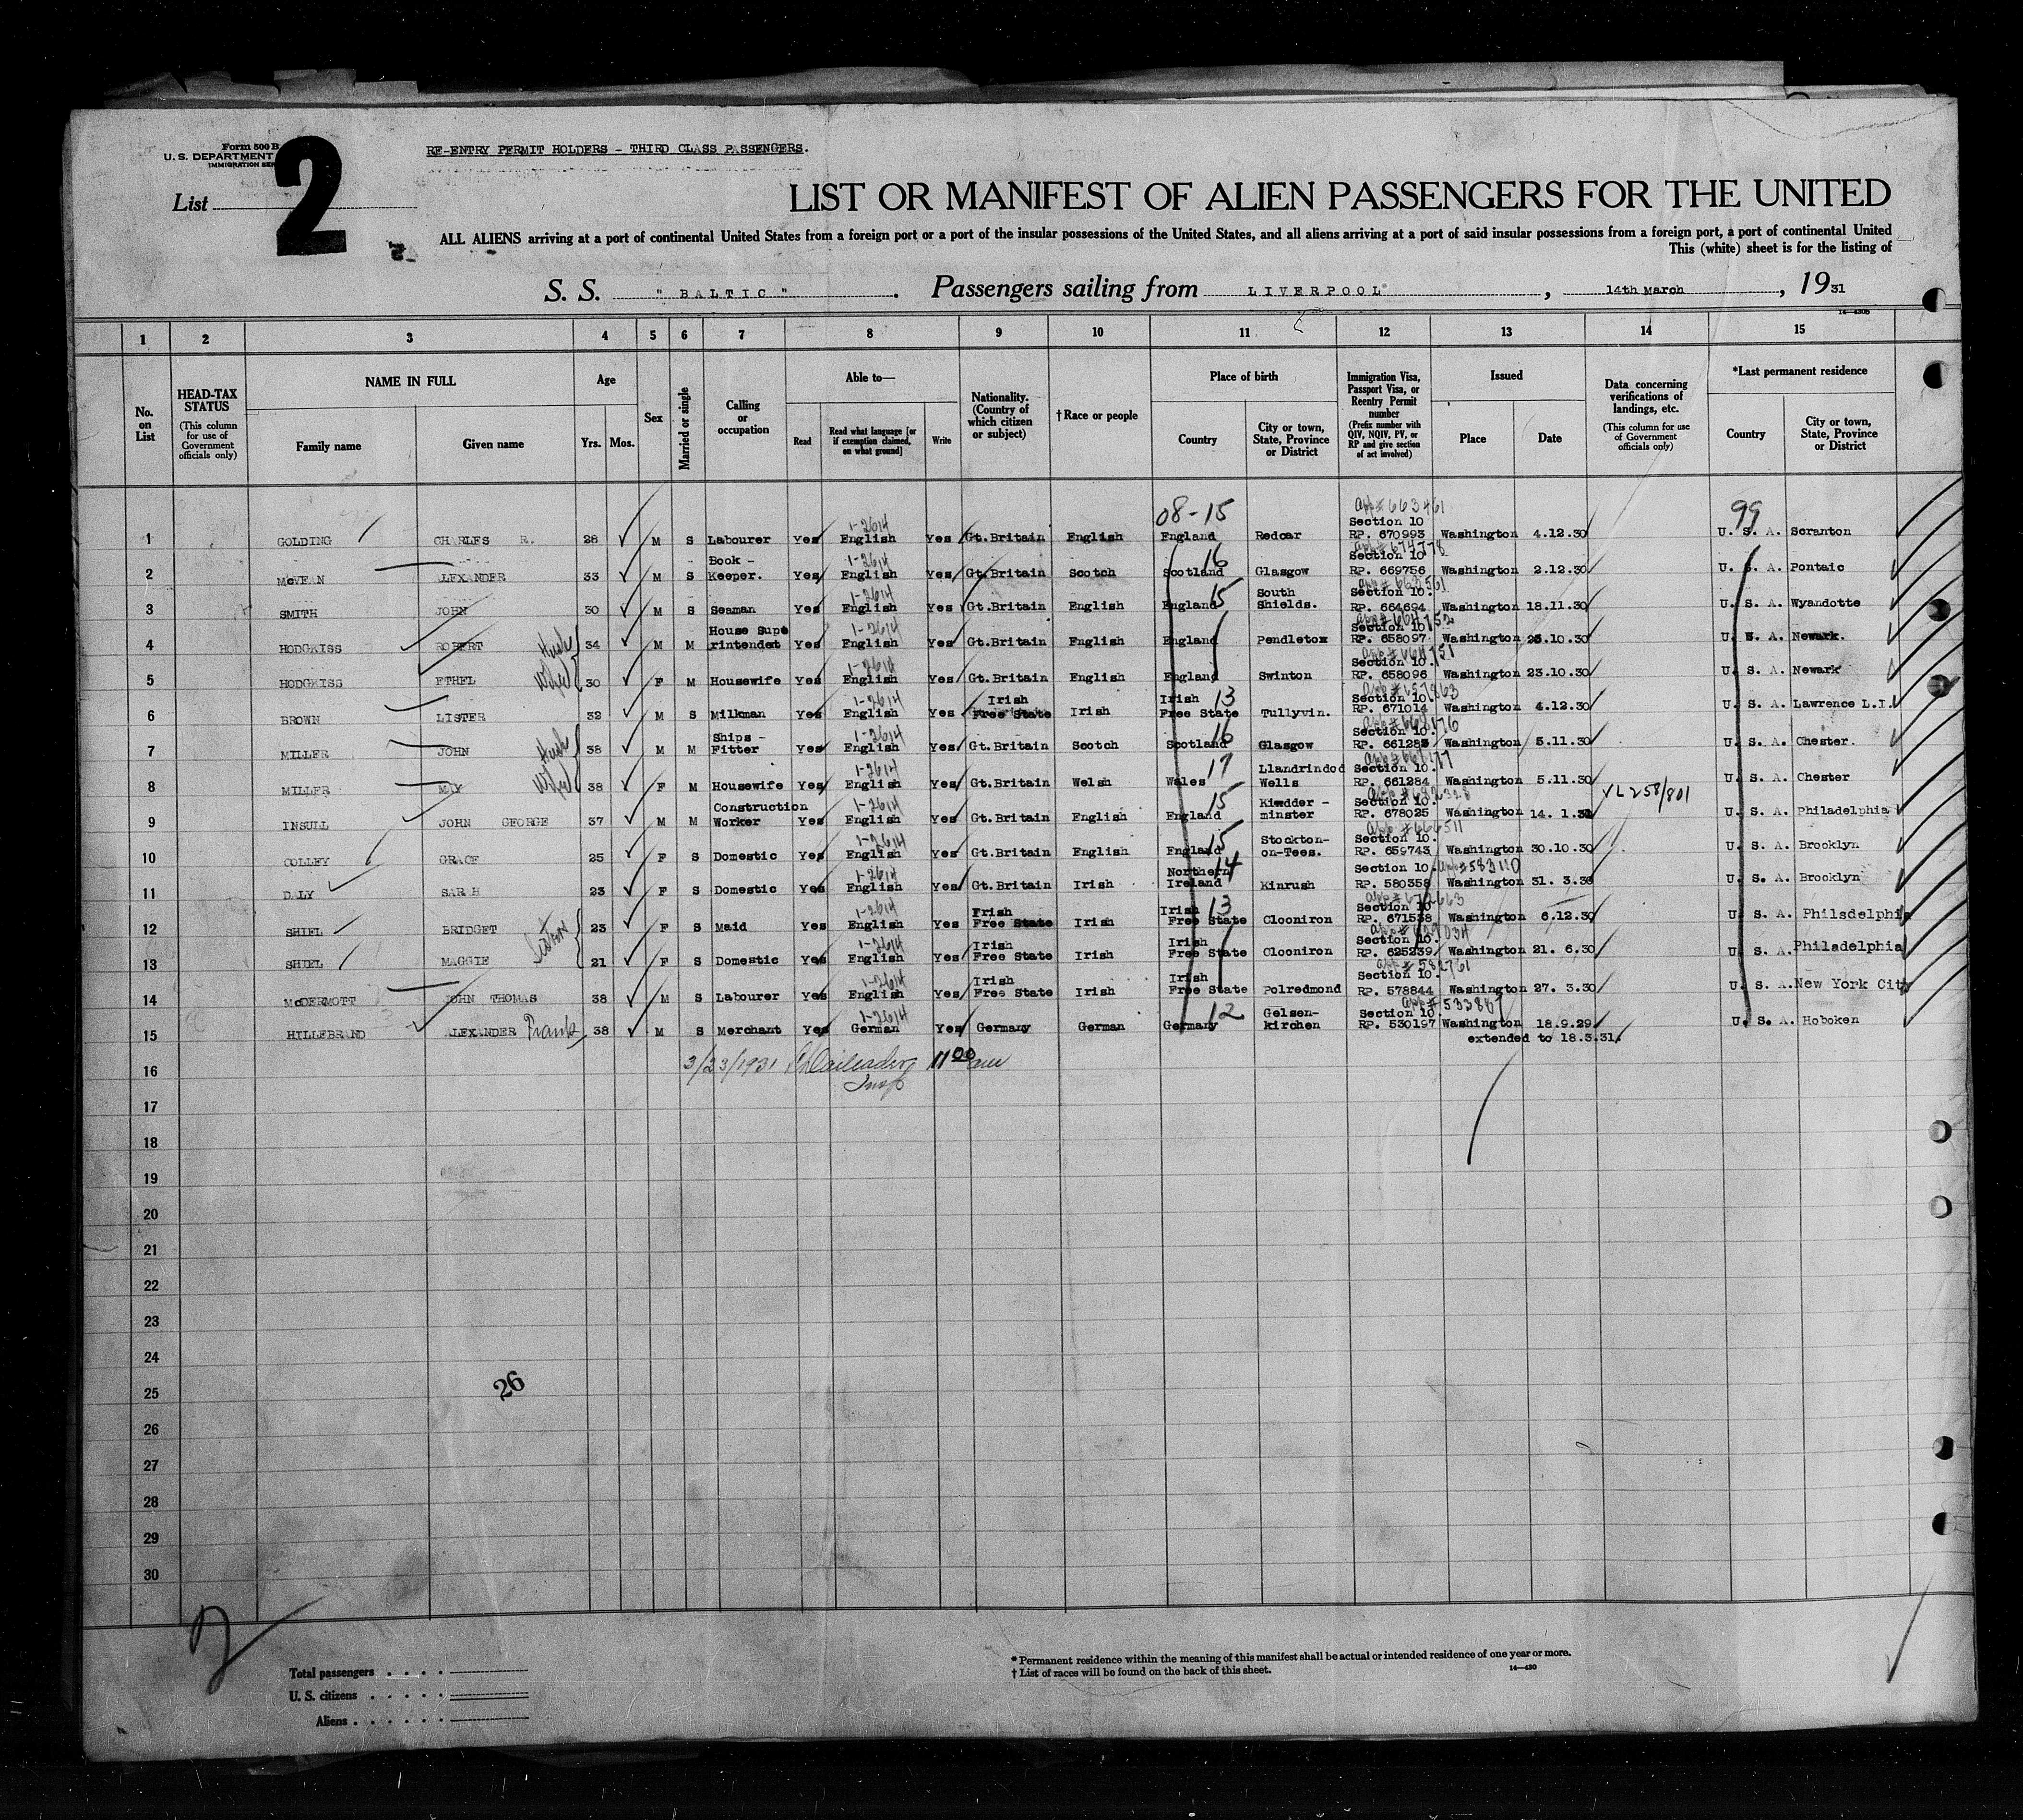 Form 500 B
U. S. DEPARTMENT
IMMIGRATION SER
2
RE-ENTRY PERMIT HOLDERS - THIRD CLASS PASSENGERS.
List
LIST OR MANIFEST OF ALIEN PASSENGERS FOR THE UNITED
ALL ALIENS arriving at a port of continental United States from a foreign port or a port of the insular possessions of the United States, and all aliens arriving at a port of said insular possessions from a foreign port, a port of continental United
This (white) sheet is for the listing of
S. S. " BALTIC " . Passengers sailing from LIVERPOOL , 14th March , 19 31
1 2 3 4 5 6 7 8 9 10 11 12 13 14 15
No. on List
HEAD-TAX STATUS (This column for use of Government officials only)
NAME IN FULL Family name Given name
Age Yrs. Mos.
Sex
Married or single
Calling or occupation
Able to— Read Read what language [or if exemption claimed, on what ground] Write
Nationality. (Country of which citizen or subject)
† Race or people
Place of birth Country City or town, State, Province or District
Immigration Visa, Passport Visa, or Reentry Permit number (Prefix number with QIV, NQIV, PV, or RP and give section of act involved)
Issued Place Date
Data concerning verifications of landings, etc. (This column for use of Government officials only)
*Last permanent residence Country City or town, State, Province or District
08-15 99
1 GOLDING CHARLES R. 28 M S Labourer Yes 1-2614 English Yes Gt.Britain English England Redcar app# 663461 Section 10 RP. 670993 Washington 4.12.30 U. S. A. Scranton
2 McVEAN ALEXANDER 33 M S Book - Keeper. Yes 1-2614 English Yes Gt.Britain Scotch Scotland 16 Glasgow app# 674778 Section 10 RP. 669756 Washington 2.12.30 U. S. A. Pontaic
3 SMITH JOHN 30 M S Seaman Yes 1-2614 English Yes Gt.Britain English England 15 South Shields. Section 10. RP. 664694 Washington 18.11.30 U. S. A. Wyandotte
4 HODGKISS ROBERT Husb 34 M M House Supe rintendet Yes 1-2614 English Yes Gt.Britain English England Pendleton app# 664752 Section 10. RP. 658097 Washington 23.10.30 U. S. A. Newark.
5 HODGKISS ETHEL Wife 30 F M Housewife Yes 1-2614 English Yes Gt.Britain English England Swinton app# 664751 Section 10. RP. 658096 Washington 23.10.30 U. S. A. Newark
6 BROWN LISTER 32 M S Milkman Yes 1-2614 English Yes Irish Free State Irish Irish Free State 13 Tullyvin. app# 657863 Section 10. RP. 671014 Washington 4.12.30 U. S. A. Lawrence L.I.
7 MILLER JOHN Husb 38 M M Ships - Fitter Yes 1-2614 English Yes Gt.Britain Scotch Scotland 16 Glasgow Section 10. RP. 661285 Washington 5.11.30 U. S. A. Chester.
8 MILLER MAY Wife 38 F M Housewife Yes 1-2614 English Yes Gt.Britain Welsh Wales 17 Llandrindod Wells Section 10. RP. 661284 Washington 5.11.30 U. S. A. Chester
9 INSULL JOHN GEORGE 37 M M Construction Worker Yes 1-2614 English Yes Gt.Britain English England 15 Kiedder - minster Section 10. RP. 678025 Washington 14. 1.31 VL258/801 U. S. A. Philadelphia
10 COLLEY GRACE 25 F S Domestic Yes 1-2614 English Yes Gt.Britain English England 15 Stockton-on-Tees. app# 666511 Section 10. RP. 659743 Washington 30.10.30 U. S. A. Brooklyn
11 DALY SARAH 23 F S Domestic Yes 1-2614 English Yes Gt.Britain Irish Northern Ireland 14 Kinrush Section 10. app# 583110 RP. 580358 Washington 31. 3.30 U. S. A. Brooklyn
12 SHIEL BRIDGET Sisters 23 F S Maid Yes 1-2614 English Yes Irish Free State Irish Irish Free State 13 Clooniron Section 10 RP. 671538 Washington 6.12.30 U. S. A. Philsdelphia
13 SHIEL MAGGIE 21 F S Domestic Yes 1-2614 English Yes Irish Free State Irish Irish Free State Clooniron Section 10. RP. 625239 Washington 21. 6.30 U. S. A. Philadelphia
14 McDERMOTT JOHN THOMAS 38 M S Labourer Yes 1-2614 English Yes Irish Free State Irish Irish Free State Polredmond app# 582761 Section 10. RP. 578844 Washington 27. 3.30 U. S. A. New York City
15 HILLEBRAND ALEXANDER Frank 38 M S Merchant Yes 1-2614 German Yes Germany German Germany 12 Gelsen-kirchen app# 533887 Section 10. RP. 530197 Washington 18.9.29 extended to 18.3.31. U. S. A. Hoboken
16 3/23/1931 Insp 11 00 am
17
18
19
20
21
22
23
24
25
26
27
28
29
30
26
2
Total passengers
U. S. citizens
Aliens
* Permanent residence within the meaning of this manifest shall be actual or intended residence of one year or more.
† List of races will be found on the back of this sheet.
14—430